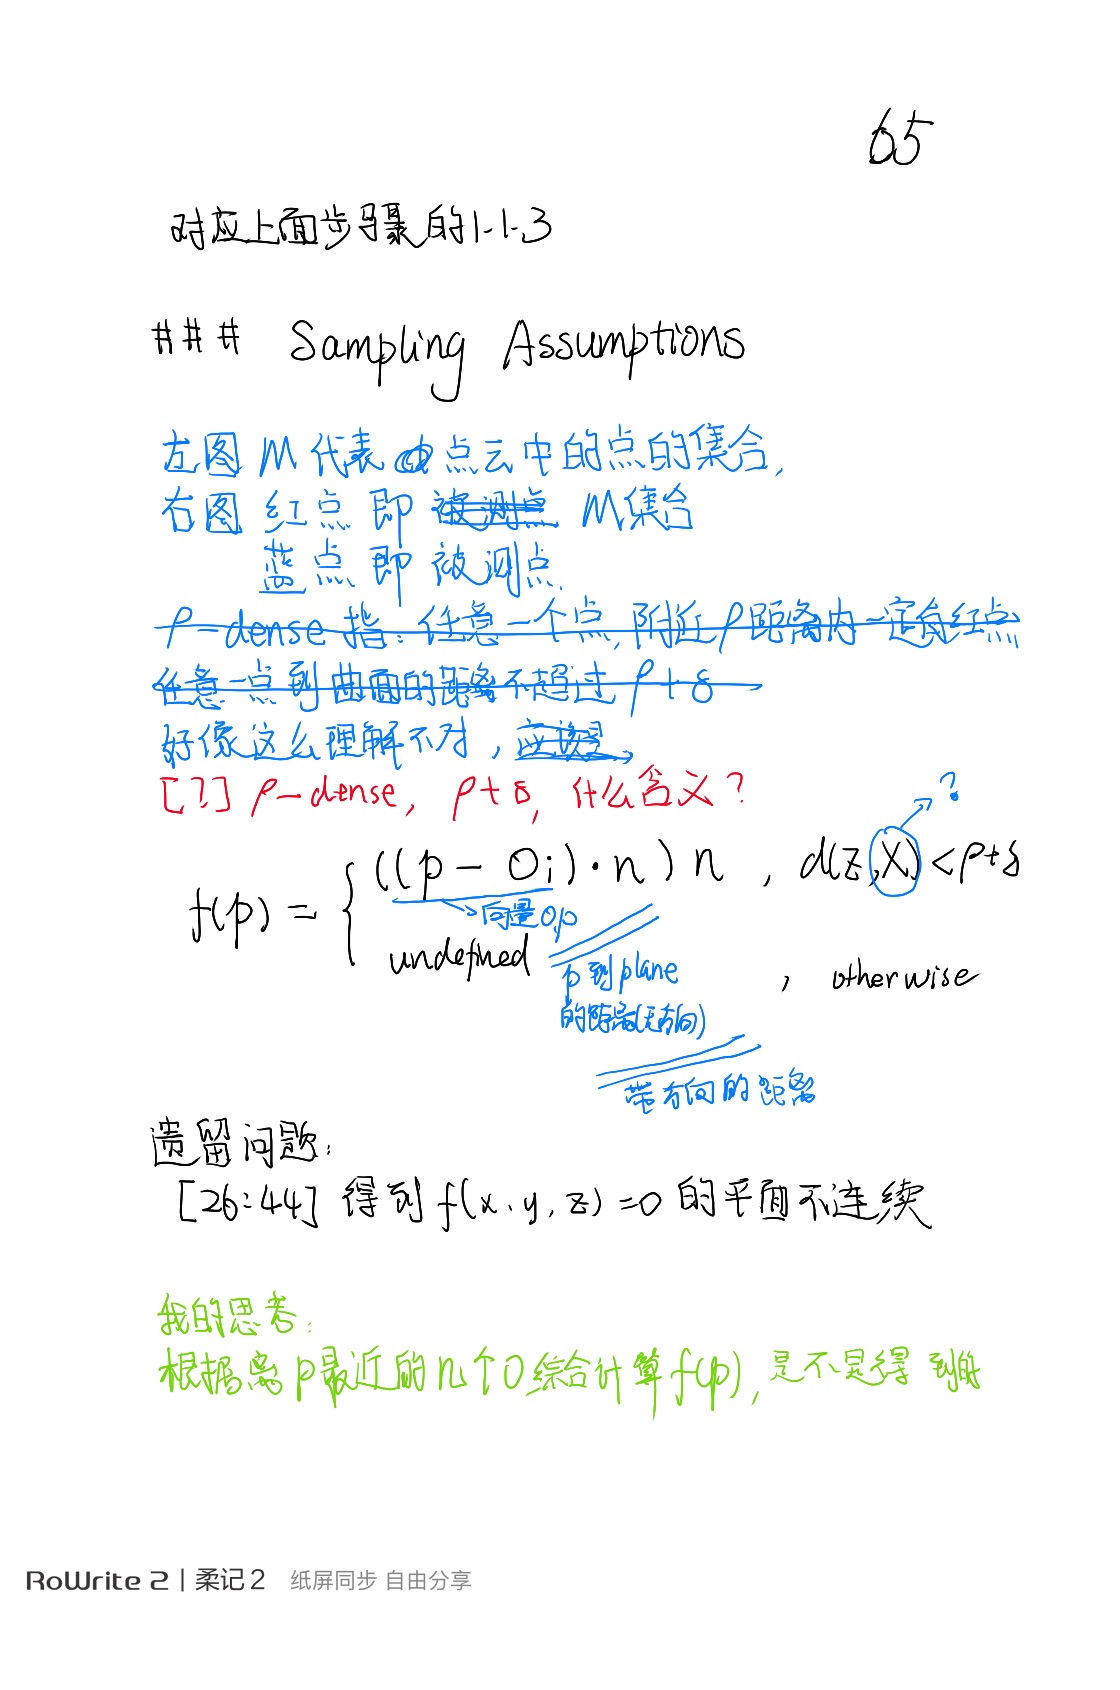 65
对应上面步骤的1.1.3
### Sampling Assumptions
左图 M 代表 点云中的点的集合,
右图 红点 即 被测点 M集合
蓝点 即 被测点.
ρ-dense 指: 任意一个点, 附近ρ距离内一定有红点
任意一点到曲面的距离不超过 ρ+δ
好像这么理解不对, 应该是,
[?] ρ-dense, ρ+δ, 什么含义?
?
f(p) = { ((p - Oi)·n) n , d(z, X) < ρ+δ
向量Oip
undefined , otherwise
p到plane
的距离(无方向)
带方向的距离
遗留问题:
[26:44] 得到 f(x, y, z) =0 的平面不连续
我的思考:
根据离p最近的n个O综合计算f(p), 是不是得到的
RoWrite 2 | 柔记2 纸屏同步 自由分享